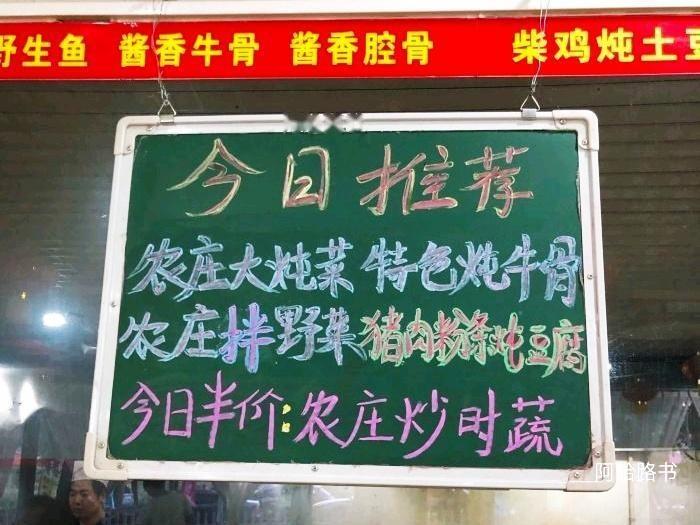 野生鱼 酱香牛骨 酱香腔骨 柴鸡炖土豆
今日推荐
农庄大炖菜 特色炖牛骨
农庄拌野菜 猪肉粉条炖豆腐
今日半价:农庄炒时蔬
阿哈路书